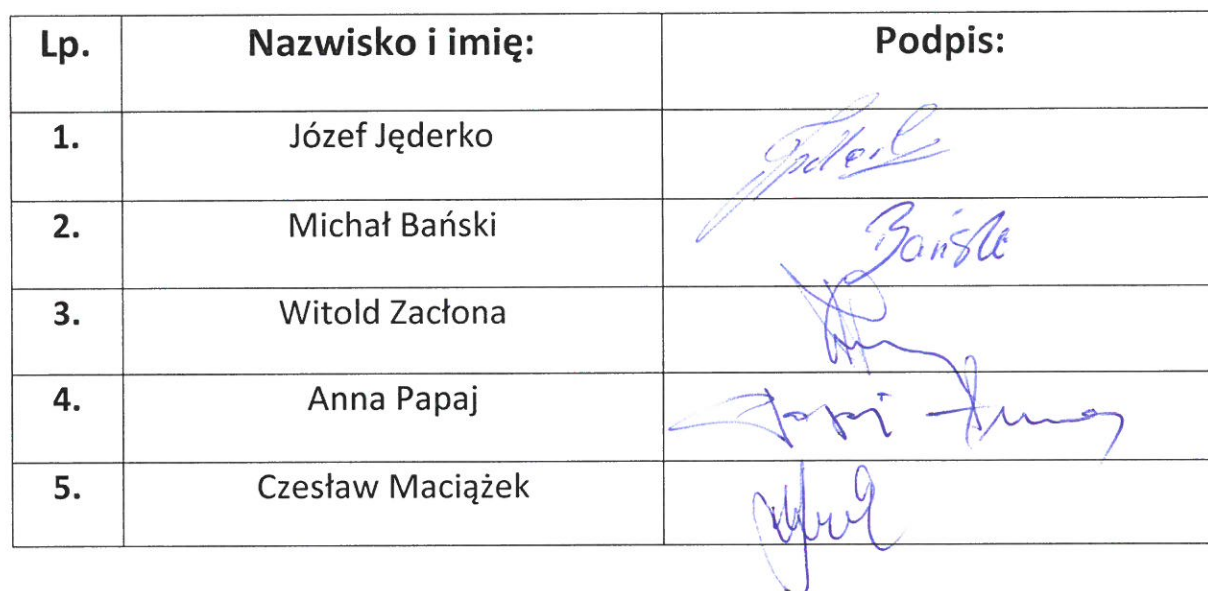 Lp. Nazwisko i imię: Podpis:
1. Józef Jęderko
2. Michał Bański Bański
3. Witold Zacłona
4. Anna Papaj
5. Czesław Maciążek